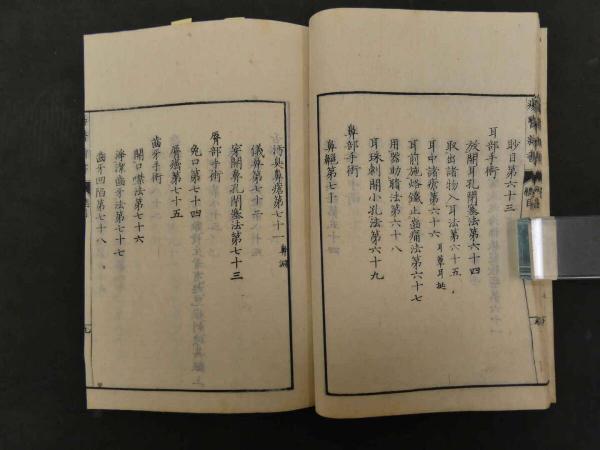 眇目第六十三
耳部手術
放開耳孔閉塞法第六十四
取出諸物入耳法第六十五
耳中諸瘡第六十六 耳蕈耳挺
耳前施烙鐵止齒痛法第六十七
用器助聽法第六十八
耳珠剌開小孔法第六十九
鼻部手術
鼻衄第七十
衂臭鼻瘡第七十一 鼻淵
儀鼻第七十二
穿開鼻孔閉塞法第七十三
脣部手術
兔口第七十四
脣癌第七十五
齒牙手術
開口噤法第七十六
淨潔齒牙法第七十七
齒牙凹陷第七十八